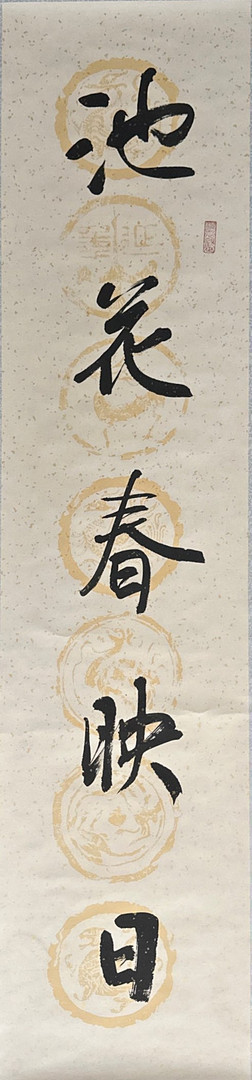 池花春映日